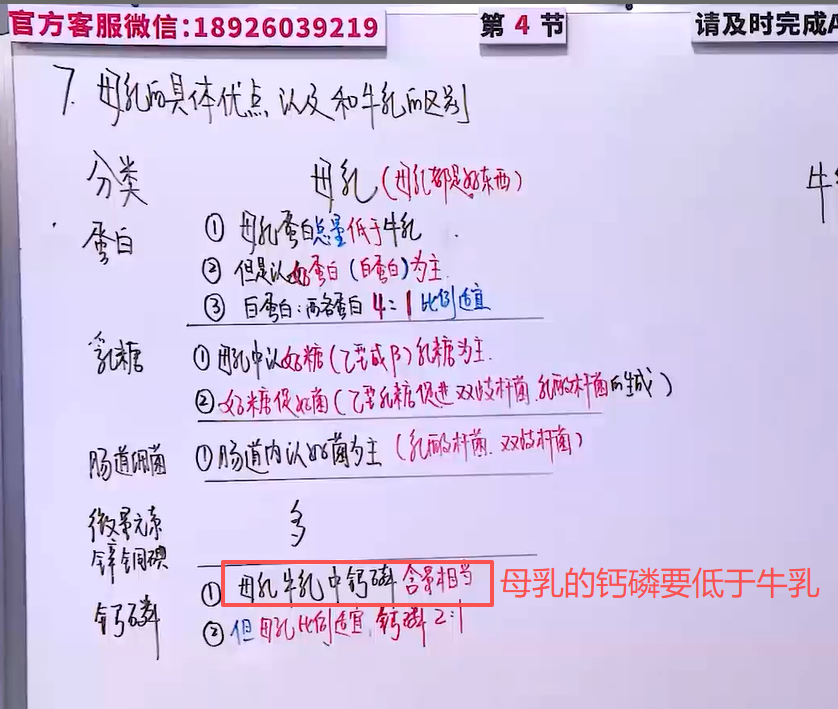 官方客服微信:18926039219
第 4 节
请及时完成A
7. 母乳的具体优点以及和牛乳的区别
分类 母乳(母乳都是好东西) 牛
蛋白 ① 母乳蛋白总量低于牛乳
② 但是以好蛋白(白蛋白)为主.
③ 白蛋白:酪蛋白 4:1 比例适宜
乳糖 ① 母乳中以好糖(乙型或β)乳糖为主.
② 好糖促好菌(乙型乳糖促进双歧杆菌.乳酸杆菌的生成)
肠道细菌 ① 肠道内以好菌为主(乳酸杆菌.双歧杆菌)
微量元素 多
锌铜碘
钙磷 ① 母乳牛乳中钙磷含量相当 母乳的钙磷要低于牛乳
② 但母乳比例适宜.钙磷2:1